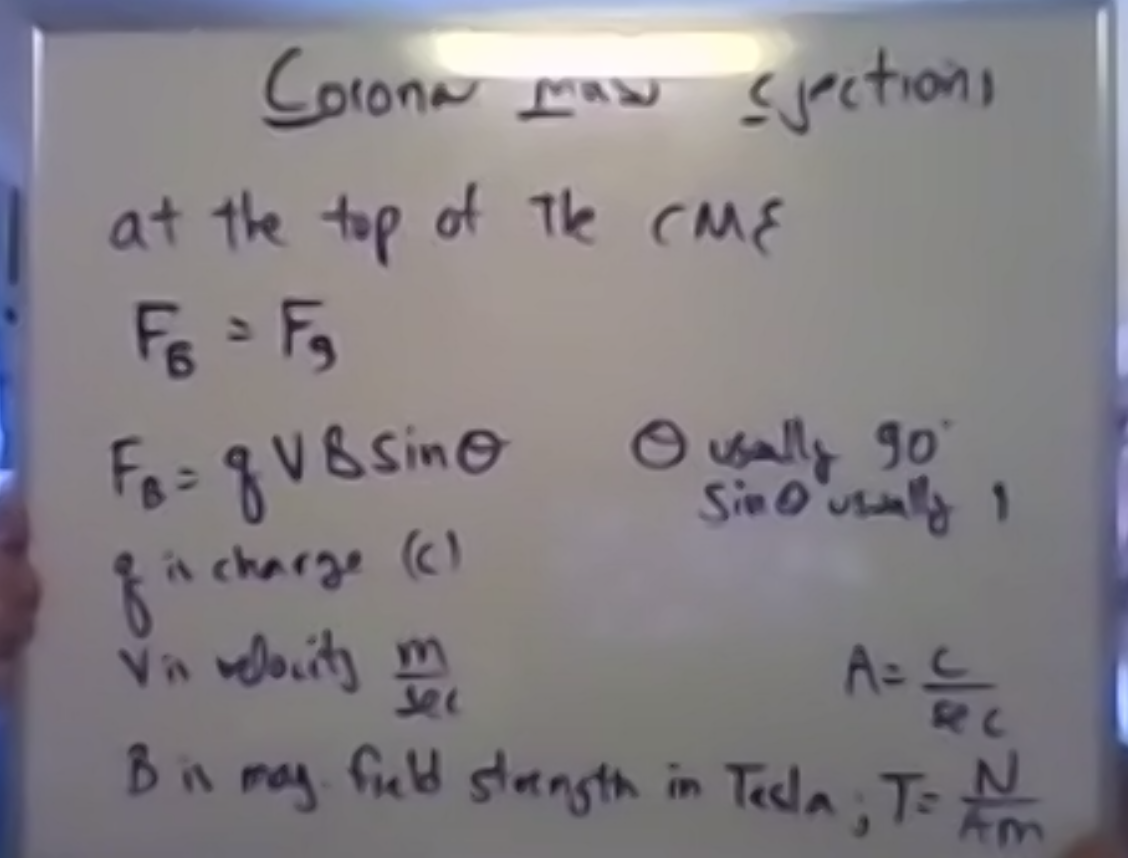 Corona mass ejections
at the top of the CME
F_B = F_g
F_B = qVBsinθ
θ usually 90°
sinθ usually 1
q is charge (C)
V is velocity m/sec
A = C/sec
B is mag. field strength in Tesla; T = N/Am